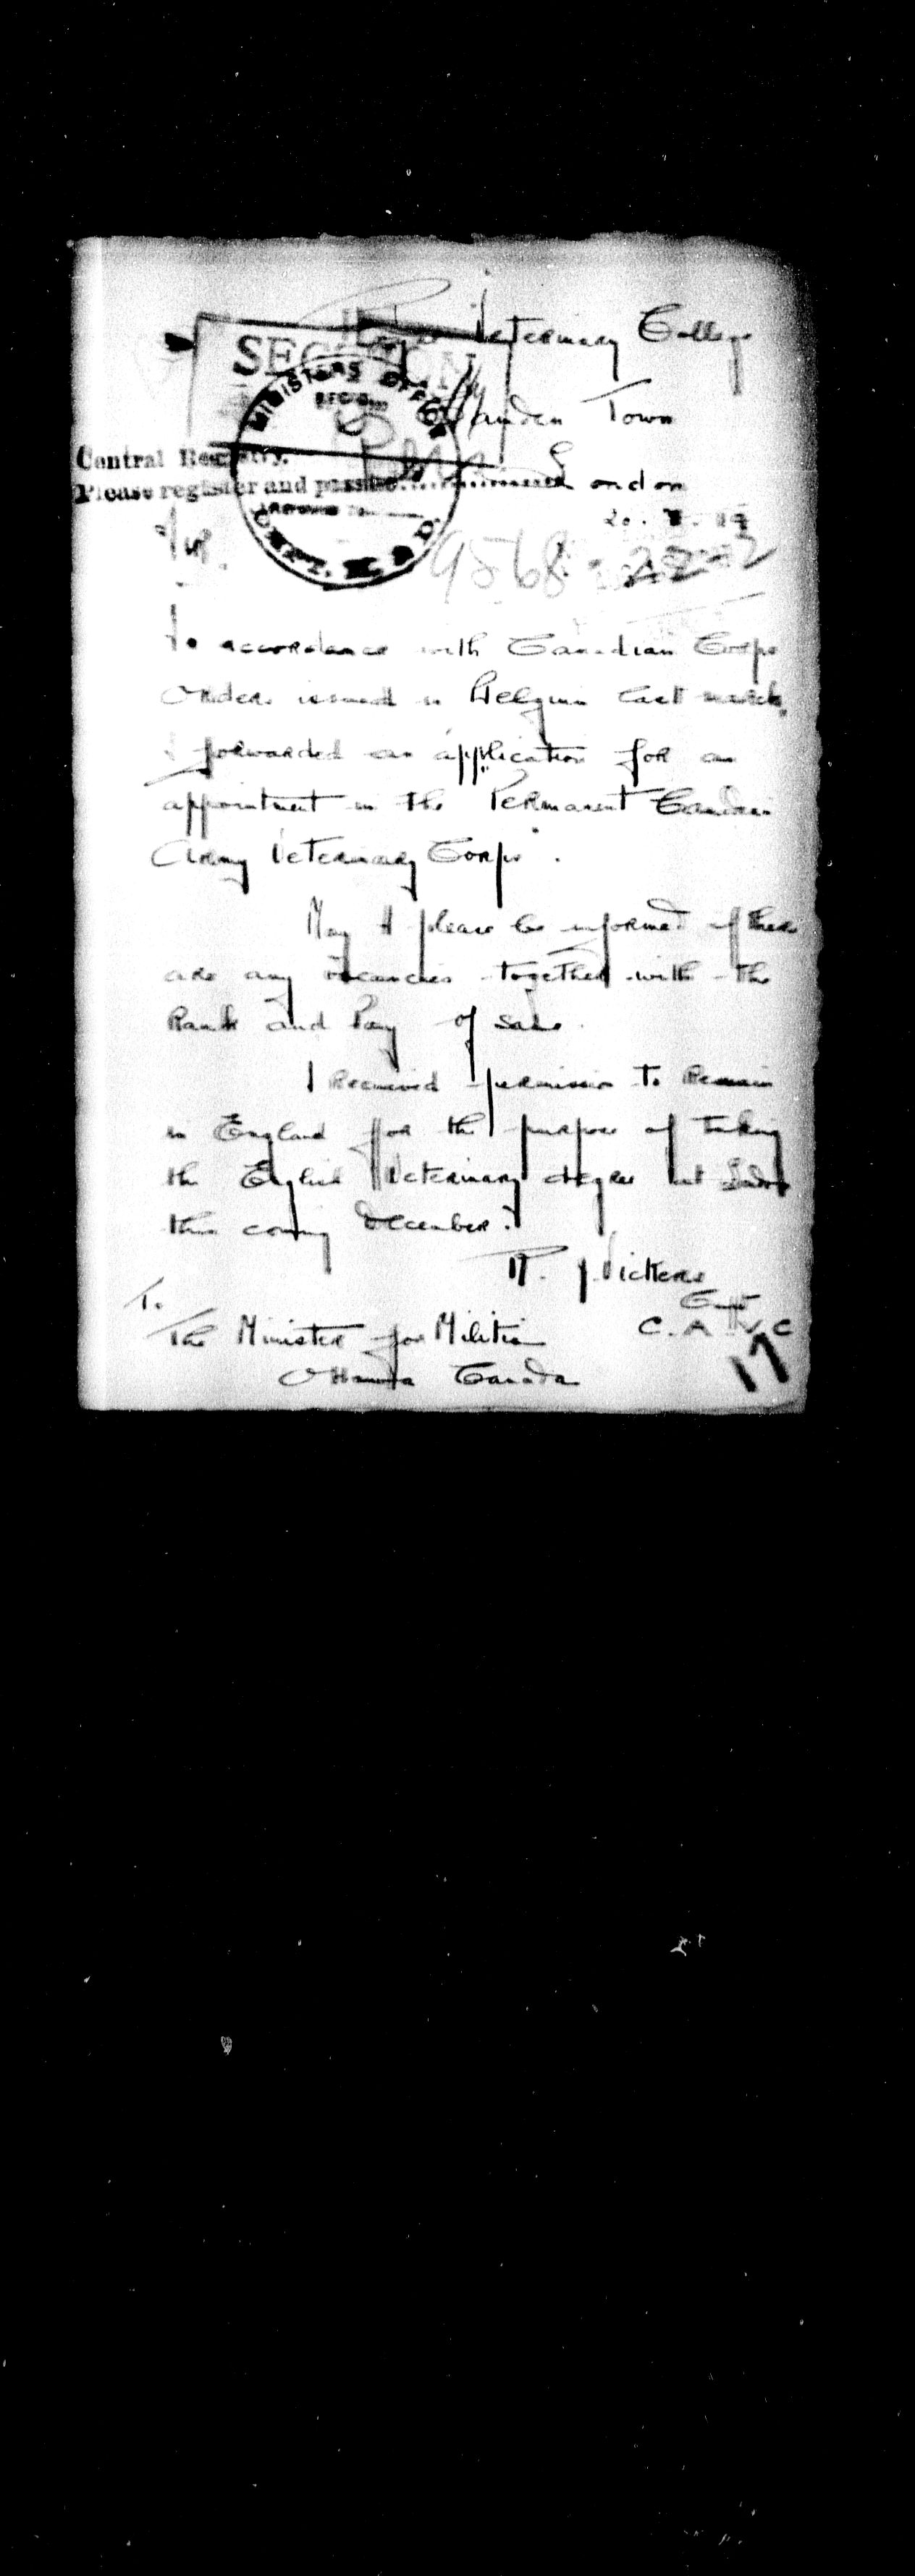 Royal Veterinary College
SECTION
MINISTERS OFFICE
Camden Town
Central Registry.
Please register and pass to London
DEPT. M & D.
20. 8. 19
Sir
9568-22-2
In accordance with Canadian Corps
Orders issued in Belgium last march,
I forwarded an application for an
appointment in the "Permanent Canadian
Army Veterinary Corps".
May I please be informed if there
are any vacancies together with the
Rank and Pay of same.
I received permission to Remain
in England for the purpose of taking
the English Veterinary degree at London
this coming December.
R. J. Vickers
Capt
C. A. V. C
To
The Minister for Militia
Ottawa Canada
17